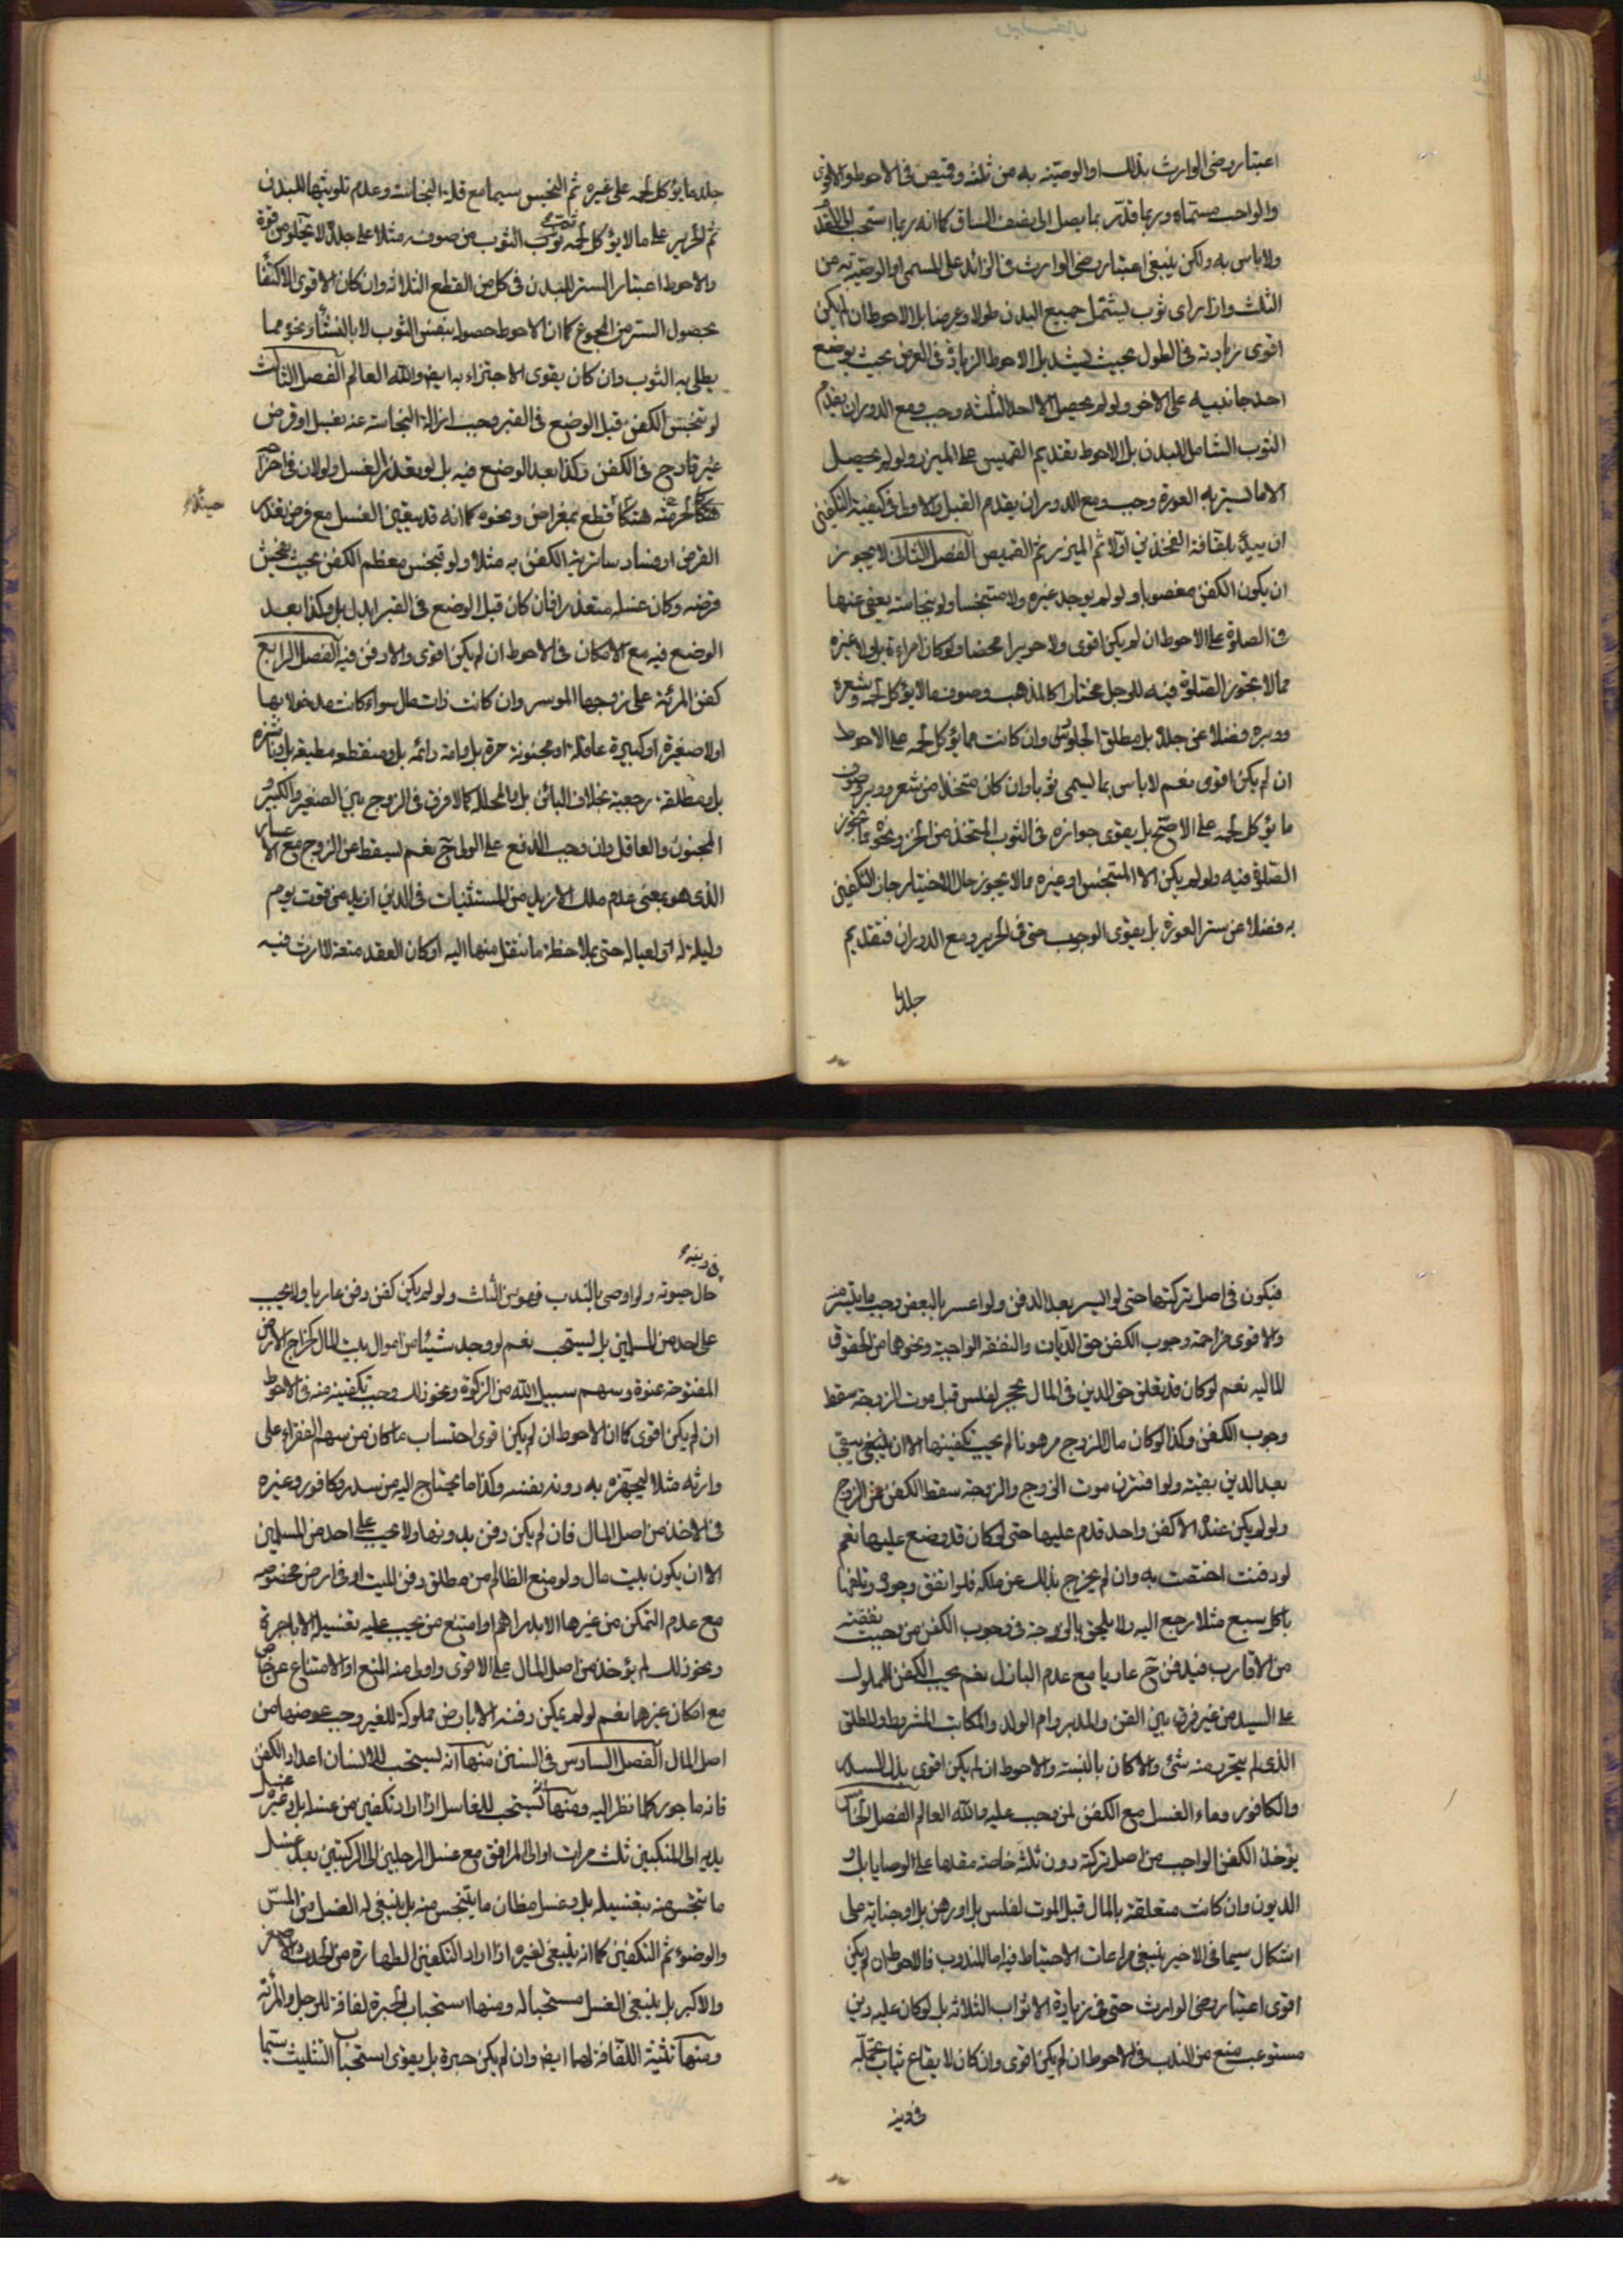 اعتبار رضى الوارث بذلك او الوصيته به من ثلثه وقميص فى الاحوط والاقوى
والواجب مستماه وربما قدّر بما يصل الى نصف الساق كما انه ربما استحب الى القدم
ولا باس به ولكن ينبغى اعتبار رضى الوارث فى الزائد على المسمى او الوصيّة به من
الثلث وازار اى ثوب يشتمل جميع البدن طولا وعرضا بل الاحوط ان لم يكن
اقوى زيادته فى الطول بحيث يشد بل الاحوط الزيادة فى العرض بحيث يوضع
احد جانبيه على الاخر ولو لم يحصل الا احد الثلثه وجب ومع الدوران يقدم
الثوب الشامل للبدن بل الاحوط تقديم القميص على الميزر ولو لم يحصل
الا ما يستر به العورة وجب ومع الدوران يقدم القبل والاولى فى كيفية التكفين
ان يبدء بلفافة الفخذين اولا ثم الميزر ثم القميص الفصل الثانى لا يجوز
ان يكون الكفن مغصوبا ولو لم يوجد غيره ولا متنجسا ولو بنجاسته يعفى عنها
فى الصلوة على الاحوط ان لم يكن اقوى ولا حريرا محضا ولو كان امراءة بل ولا غيره
مما لا تجوز الصّلوة فيه للرجل مختارا كالمذهب وصوف ما لا يؤكل لحمه وشعره
ووبره فضلا عن جلده بل مطلق الجلود حتى وان كانت مما يؤكل لحمه على الاحوط
ان لم يكن اقوى نعم لا باس بما يسمى ثوبا وان كان متخذا من شعر ووبر وصوف
ما يؤكل لحمه على الاصحّ بل يقوى جوازه فى الثوب المتخذ من الخز ونحوه مما تجوز
الصّلوة فيه ولو لم يكن الا المتنجس او غيره مما لا يجوز حال الاختيار جاز التكفين
به فضلا عن ستر العورة بل يقوى الوجوب حتى فى الحرير ومع الدوران فتقديم
جلد ما
جلد ما يؤكل لحمه على غيره ثم النجس سيما مع قلة النجاسته وعدم تلويثها للبدن
ثم الحرير على ما لا يؤكل لحمه ثوب الثوب من صوفه مثلا على جلده لا يخلو من قوة
والاحوط اعتبار الستر للبدن فى كل من القطع الثلاثه وان كان الاقوى الاكتفا
بحصول الستر من المجموع كما ان الاحوط حصوله بنفس الثوب لا بالنشاء ونحوه مما
يطلى به الثوب وان كان يقوى الاجتزاء به ايضا والله العالم الفصل الثالث
لو تنجس الكفن قبل الوضع فى القبر وجب ازالة النجاسته عنه بغسل او قرض
غير قادح فى الكفن وكذا بعد الوضع فيه بل لو تعذر الغسل ولو لان فى اخراجه
حينئذ هتكا لحرمته قطع بمقراض ونحوه كما انه قد يتعين الغسل مع فرض تعذر
القرض او فساد ساترية الكفن به مثلا ولو تنجس معظم الكفن بحيث يفحش
قرضه وكان غسله متعذرا فان كان قبل الوضع فى القبر ابدل بل وكذا بعد
الوضع فيه مع الامكان فى الاحوط ان لم يكن اقوى والا دفن فيه الفصل الرابع
كفن المرئة على زوجها الموسر وان كانت ذات مال سواء كانت مدخولا بها
اولا صغيرة او كبيرة عاقلة او مجنونة حرة بل وامة دائمه بل ومنقطعه مطيعه بل وناشزه
بل ومطلقة رجعية بخلاف البائن بل والمحلله كما لا فرق فى الزوج بين الصغير والكبير
المجنون والعاقل وان وجب الدفع على الولى ح نعم يسقط عن الزوج مع الاعسار
الذى هو بمعنى عدم ملك الازيد من المستثنيات فى الدين ازيد من قوت يوم
وليلة له ولعياله حتى بملاحظة ما ينتقل منها اليه او كان العقد متعة لا ارث فيه
فيكون فى اصل تركتها حتى لو ايسر بعد الدفن ولو اعسر بالبعض وجب ما تيسر منه
والاقوى مزاحمة وجوب الكفن حق الديان والنفقه الواجبة ونحوهما من الحقوق
الماليه نعم لو كان قد تعلق حق الدين فى المال بحجر لفلس قبل موت الزوجة سقط
وجوب الكفن وكذا لو كان مال الزوج مرهونا لم يجب تكفينها الا ان يبقى
بعد الدين بقية ولو اقترن موت الزوج والزوجة سقط الكفن عن الزوج
ولو لم يكن عنده الا كفن واحد قدم عليها حتى لو كان قد وضع عليها نعم
لو دفنت اختصت به وان لم يخرج بذلك عن ملكه فلو اتفق وجوده وتلفها
باكل سبع مثلا رجع اليه ولا يلحق بالزوجة فى وجوب الكفن من وجبت نفقته
من الاقارب فيدفن ح عاريا مع عدم الباذل نعم يجب الكفن للمملوك
على السيد من غير فرق بين القن والمدبر وام الولد والمكاتب المشروط والمطلق
الذى لم يتحرر منه شئ والا كان بالنسبة والاحوط ان لم يكن اقوى بذل السدر
والكافور وماء الغسل مع الكفن لمن وجب عليه والله العالم الفصل الخامس
يؤخذ الكفن الواجب من اصل تركته دون ثلثه خاصة مقدما على الوصايا بل و
الديون وان كانت متعلقة بالمال قبل الموت لفلس بل او رهن بل او جناية على
اشكال سيما فى الاخير ينبغى مراعات الاحتياط فيه اما المندوب فالاحوط ان لم يكن
اقوى اعتبار رضى الوارث حتى فى زيادة الاثواب الثلاثه بل لو كان عليه دين
مستوعب منع من الندب فى الاحوط ان لم يكن اقوى وان كان لا يقاع ثياب تجمله
فى دينه
فى دينه
حال حيوته ولو اوصى بالندب فهو من الثلث ولو لم يكن كفن دفن عاريا ولا يجب
على احد من المسلمين بل يستحب نعم لو وجد شيئا من اموال بيت المال كخراج الارض
المفتوحة عنوة وسهم سبيل الله من الزكوة ونحو ذلك وجب تكفينه منه فى الاحوط
ان لم يكن اقوى كما ان الاحوط ان لم يكن اقوى احتساب ما كان من سهم الفقراء على
وارثه مثلا ليجهزه به دونه بنفسه وكذا ما يحتاج اليه من سدر وكافور وغيره
فى الاخذ من اصل المال فان لم يكن دفن بدونها ولا يجب على احد من المسلمين
الا ان يكون بيت مال ولو منع الظالم من مطلق دفن الميت او فى ارض مخصوصه
مع عدم التمكن من غيرها الا بدراهم او امتنع من يجب عليه تغسيله الا باجرة
ونحو ذلك لم يؤخذ من اصل المال على الاقوى واولى منه المنع او الامتناع عن خاص
مع امكان غيرها نعم لو لم يمكن دفنه الا بارض مملوكة للغير وجب عوضها من
اصل المال الفصل السادس فى السنن منها انه يستحب للانسان اعداد الكفن
فانه ماجور كلما نظر اليه ومنها انه يستحب للغاسل اذا اراد تكفين من غسله بل وغيره غسل
يديه الى المنكبين ثلث مرات او الى المرافق مع غسل الرجلين الى الركبتين بعد غسل
ما تنجس منه بتغسيله بل وغسل مظان ما يتنجس منه بل ينبغى له الغسل من المسّ
والوضوء ثم التكفين كما انه ينبغى لغيره اذا اراد التكفين الطهارة من الحدث الاصغر
والاكبر بل ينبغى الغسل مستحبا له ومنها استحباب الحبرة لفافة للرجل والمرئة
ومنها تثنية اللفافة لهما ايضا وان لم يكن حبرة بل يقوى استحباب التثليث سيما